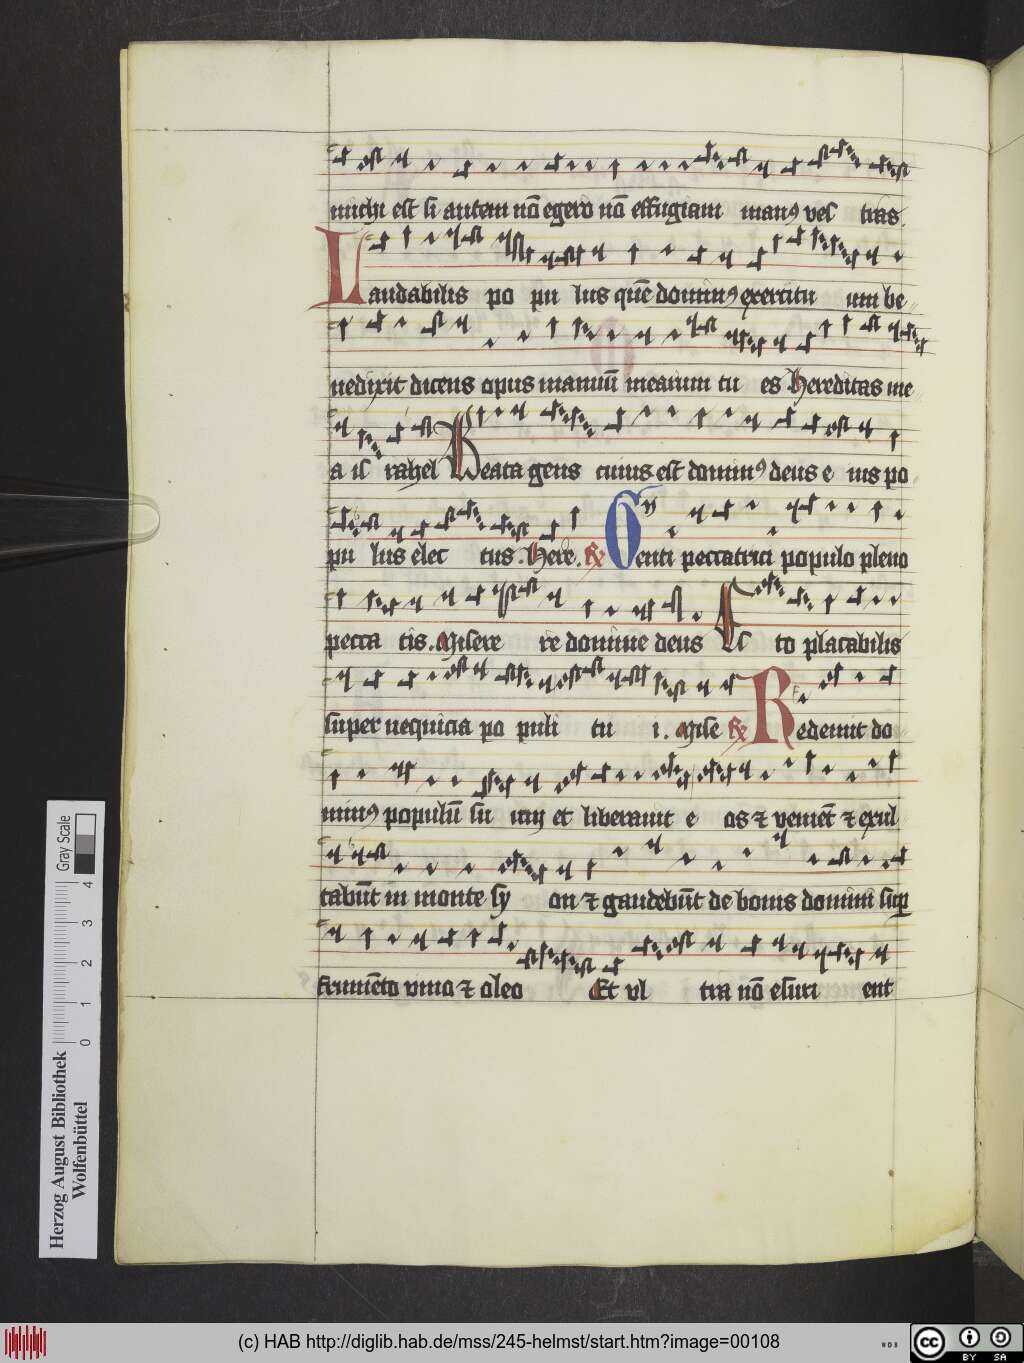 michi est si autem nō egero nō effugiam manꝯ ves tras
Laudabilis po pu lus quē dominꝯ exercitu um be
nedixit dicens opus manuū mearum tu es hereditas me
a is rahel Beata gens cuius est dominꝯ deus e ius po
pu lus elec tus. Here. ℟ Genti peccatrici populo pleno
pecca tis. Misere re domine deus Es to placabilis
super nequicia po puli tu i. Mise ℟ Redemit do
minꝯ populū su um et liberauit e os ⁊ veniēt ⁊ exul
tabūt in monte sy on ⁊ gaudebūt de bonis domini suꝑ
frumēto vino ⁊ oleo Et vl tra nō esuri ent
Herzog August Bibliothek
Wolfenbüttel
Gray Scale
0 1 2 3 4
(c) HAB http://diglib.hab.de/mss/245-helmst/start.htm?image=00108
WDB
cc BY SA